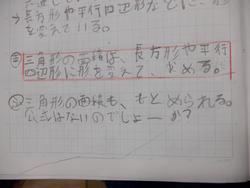 長方形や平行四辺形などに、形
を変えている。
㋮三角形の面積は、長方形や平行
四辺形に形を変えて、求める。
三角形の面積も、もとめられる。
公式はないのでしょーか?